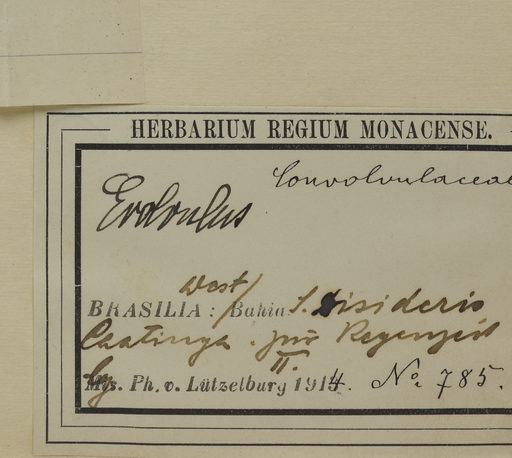 HERBARIUM REGIUM MONACENSE.
Convolvulaceae
Evolvulus
West
BRASILIA: / Bahia S. Disideris
Caatinga. zur Regenzeit
II.
Ph. v. Lützelburg 1914. No. 785.